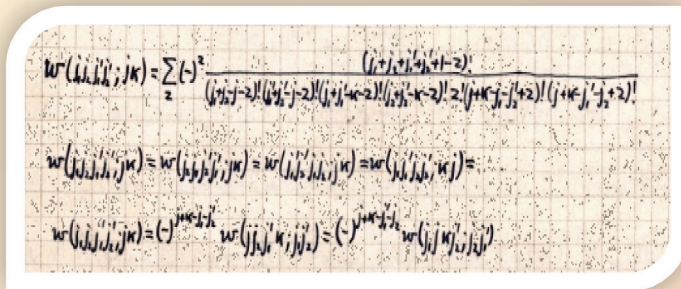 w(j₁j₂j₁'j₂';jκ) = ∑_z (-)^z (j₁+j₂+j₁'+j₂'+1-z)! / (j₁+j₂-j-z)!(j₁'+j₂'-j-z)!(j₁+j₁'-κ-z)!(j₂+j₂'-κ-z)! z!(j+κ-j₁-j₂'+z)!(j+κ-j₁'-j₂+z)!
w(j₁j₂j₁'j₂';jκ) = w(j₂j₁j₂'j₁';jκ) = w(j₁'j₂'j₁j₂;jκ) = w(j₁j₁'j₂j₂';κj) =
w(j₁j₂j₁'j₂';jκ) = (-)^{j+κ-j₁-j₂'} w(jj₂j₁'κ;j₁j₂') = (-)^{j+κ-j₁'-j₂} w(j₁jκj₂';j₂j₁')